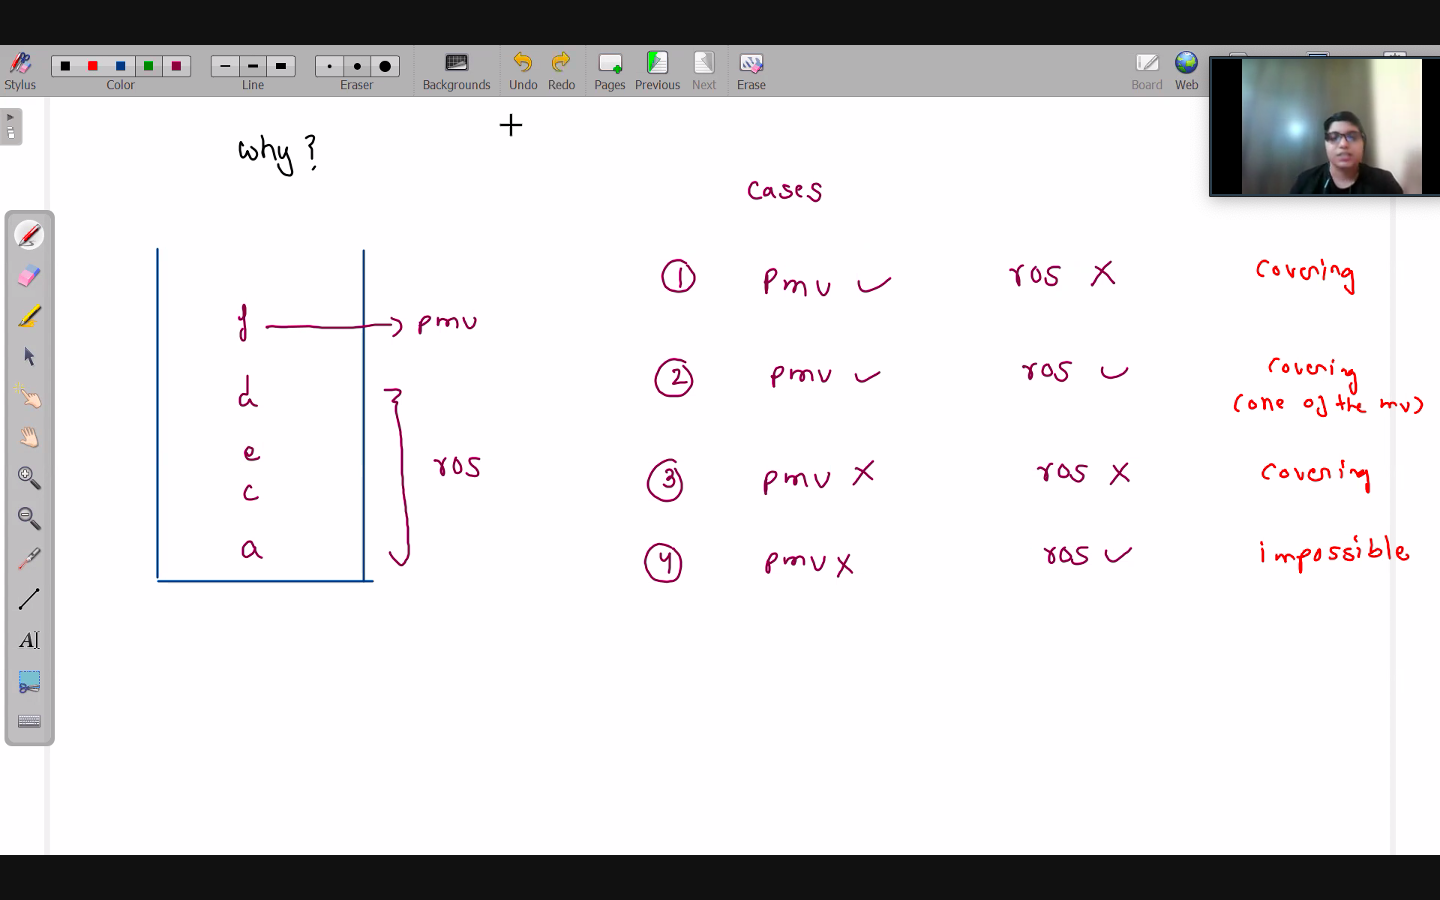 Stylus
Color
Line
Eraser
Backgrounds
Undo
Redo
Pages
Previous
Next
Erase
Board
Web
why?
cases
f → pmv
d
e
c
a
ros
① pmv ✓ ros ✗ covering
② pmv ✓ ros ✓ covering
(one of the mv)
③ pmv ✗ ros ✗ covering
④ pmv ✗ ros ✓ impossible